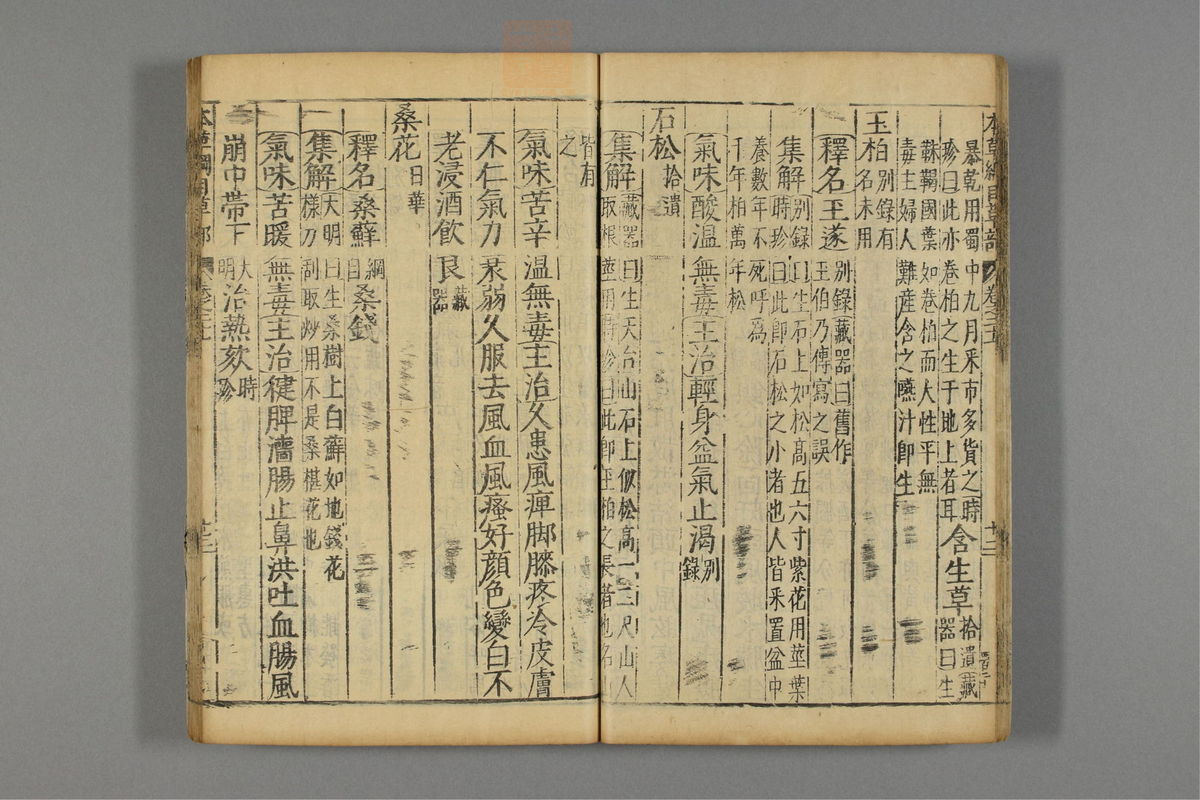 本草綱目草部 卷之五 十三
暴乾用蜀中九月采市多貨之時
珍曰此亦卷柏之生于地上者耳 含生草 拾遺藏器曰生
靺鞨國葉如卷柏而大性平無
毒主婦人難產含之嚥汁即生
玉柏 別錄有名未用
釋名玉遂 別錄藏器曰舊作
玉伯乃傳寫之誤
集解 別錄曰生石上如松高五六寸紫花用莖葉
時珍曰此即石松之小者也人皆采置盆中
養數年不死呼爲
千年柏萬年松
氣味酸溫無毒主治輕身益氣止渴 別錄
石松 拾遺
集解 藏器曰生天台山石上似松高一二尺山人
取根莖用時珍曰此即玉柏之長者也名山
皆有
之
氣味苦辛溫無毒主治久患風痺脚膝疼冷皮膚
不仁氣力衰弱久服去風血風瘙好顏色變白不
老浸酒飲良 藏器
桑花 日華
釋名桑蘚 綱目 桑錢
集解 大明曰生桑樹上白蘚如地錢花
樣刀刮取炒用不是桑椹花也
氣味苦暖無毒主治健脾濇腸止鼻洪吐血腸風
崩中帶下 大明 治熱欬 時珍
本草綱目草部